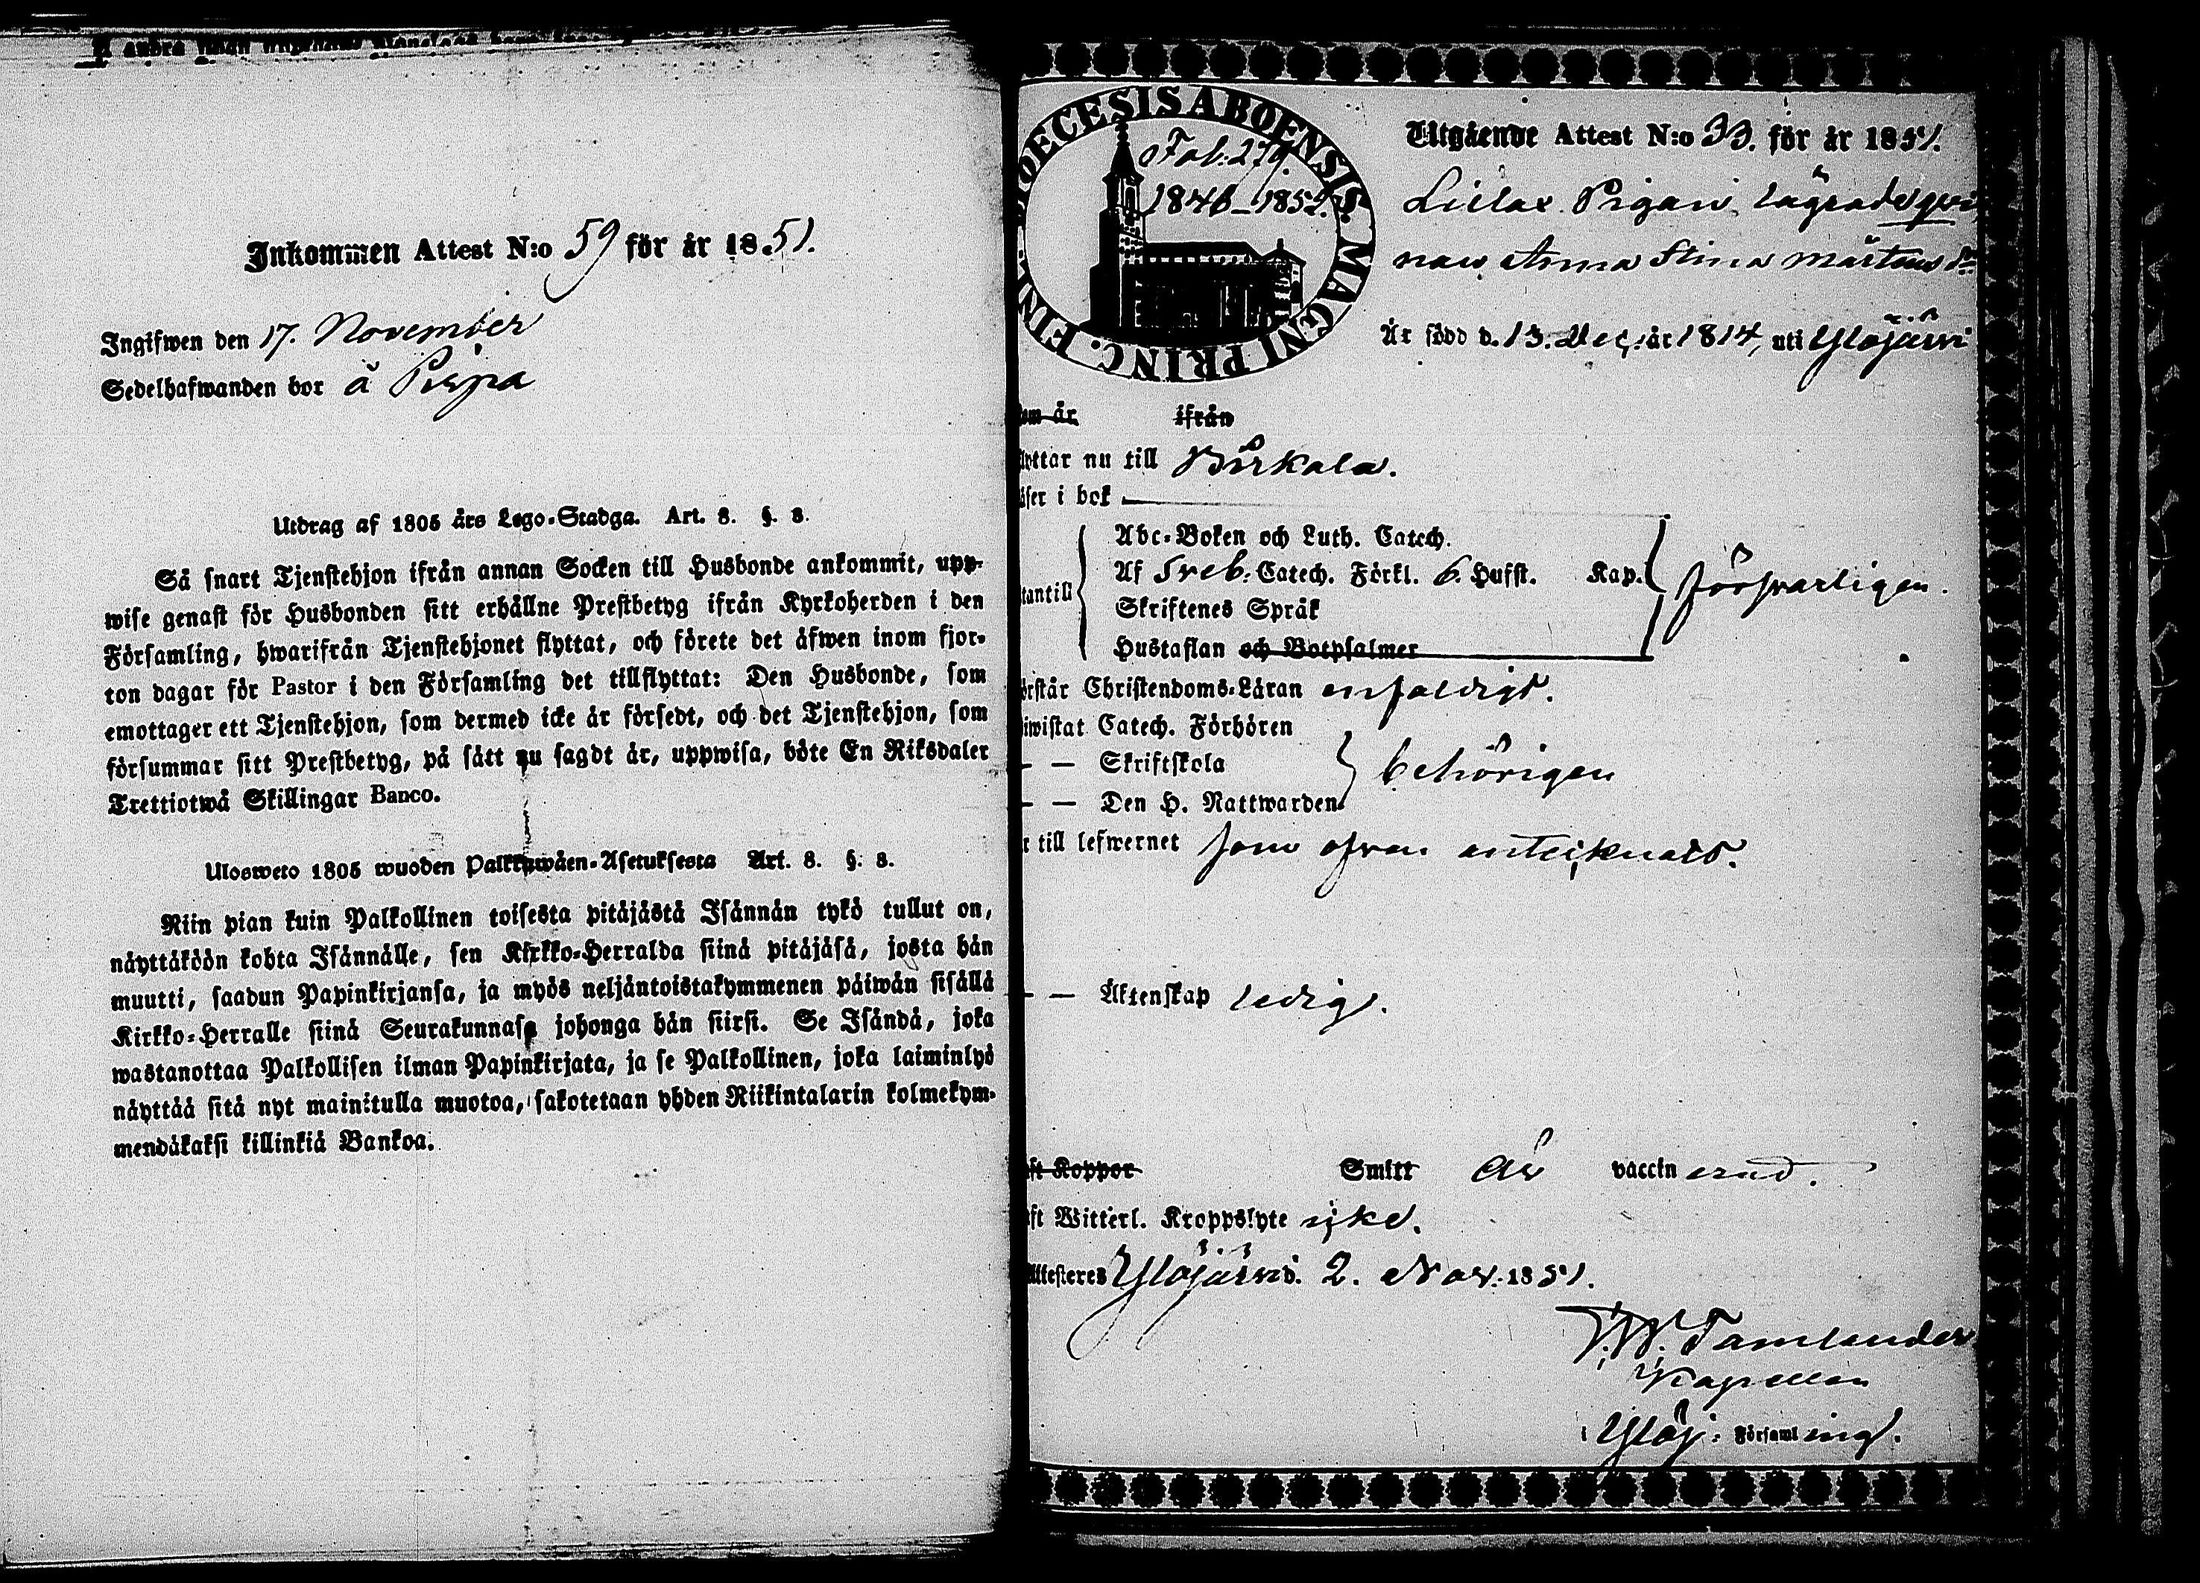 Inkommen Attest N:o 59 för år 1851.
Ingifwen den 17. November
Sedelhafwanden bor å Pispa
Utdrag af 1805 års Lego-Stadga. Art. 8. §. 8.
Så snart Tjenstehjon ifrån annan Socken till Husbonde ankommit, upp-
wise genast för Husbonden sitt erhållne Prestbetyg ifrån Kyrkoherden i den
Församling, hwarifrån Tjenstehjonet flyttat, och förete det äfwen inom fjor-
ton dagar för Pastor i den Församling det tillflyttat: Den Husbonde, som
emottager ett Tjenstehjon, som dermed icke är försedt, och det Tjenstehjon, som
försummar sitt Prestbetyg, på sätt nu sagdt är, uppwisa, böte En Riksdaler
Trettiotwå Skillingar Banco.
Ulosweto 1805 wuoden Palkkawäen-Asetuksesta Art. 8. §. 8.
Niin pian kuin Palkollinen toisesta pitäjästä Isännän tykö tullut on,
näyttäköön kohta Isännälle, sen Kirkko-Herralda siinä pitäjäsä, josta hän
muutti, saadun Papinkirjansa, ja myös neljäntoistakymmenen päiwän sisällä
Kirkko-Herralle siinä Seurakunnasa johonga hän siirsi. Se Isändä, joka
wastanottaa Palkollisen ilman Papinkirjata, ja se Palkollinen, joka laiminlyö
näyttää sitä nyt mainitulla muotoa, sakotetaan yhden Riikintalarin kolmekym-
mendäkaksi killinkiä Bankoa.
DIOECESIS ABOENSIS. MAGNI PRINC. FINL.
Fol. 279
1846-1852.
Utgående Attest N:o 33. för år 1851.
Pigan,
Anna Stina Mårtensdr
Är född d. 13. Dec. år 1814, uti Ylöjärvi
är ifrån
flyttar nu till Birkala.
läser i bok
utantill
Abc-Boken och Luth. Catech.
Af Sveb. Catech. Förkl. 6. Hufst. Kap.
Skriftenes Språk
försvarligen.
Hustaflan och Botpsalmer
förstår Christendoms-Läran enfaldigt.
biwistat Catech. Förhören
— — Skriftskola
behörigen
— — Den H. Nattwarden
är till lefwernet som ofvan antecknats.
— — Äktenskap ledig.
haft Koppor Smitt är vaccinerad.
haft Witterl. Kroppslyte icke.
Attesteres Ylöjärvi d. 2. Nov. 1851.
Tamlander
Kapellan
i Ylöj. Församling.